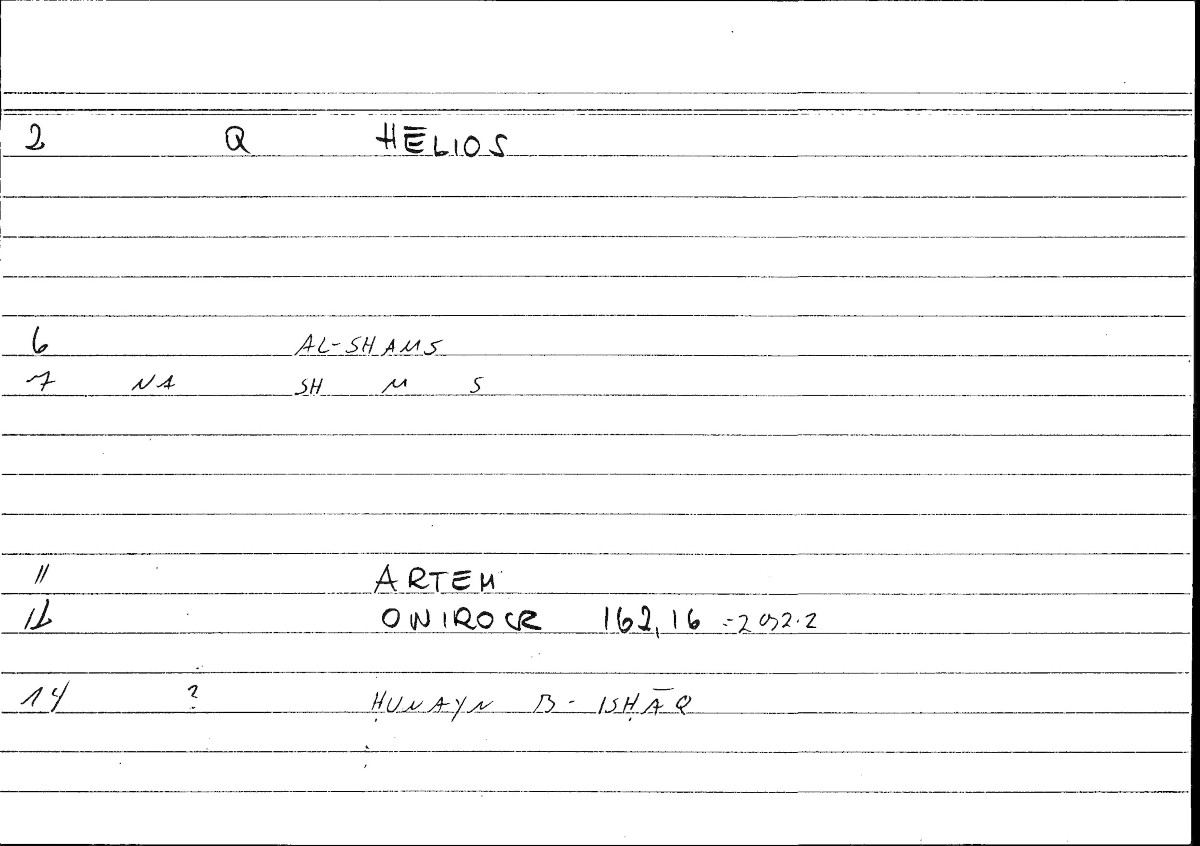 2 Q HĒLIOS
6 AL-SHAMS
7 NA SH M S
11 ARTEM
12 ONIROCR 162,16
14 ? ḤUNAYN B- ISḤĀQ